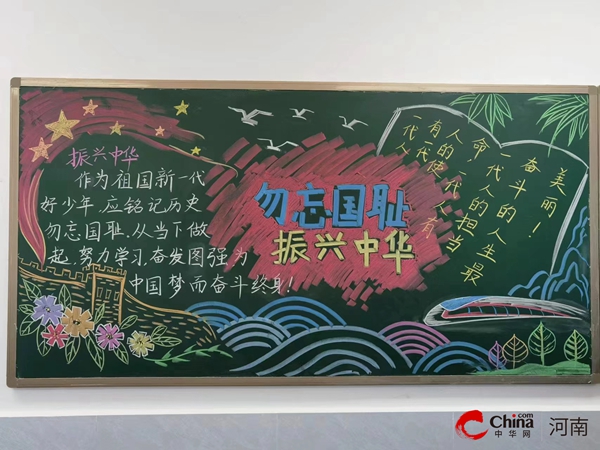 振兴中华
作为祖国新一代
好少年,应铭记历史
勿忘国耻,从当下做
起,努力学习,奋发图强为
中国梦而奋斗终身!
勿忘国耻
振兴中华
一代人
有一代
人的使
命,一代人有
一代人的担当
奋斗的人生最
美丽!
China.com
中华网
河南